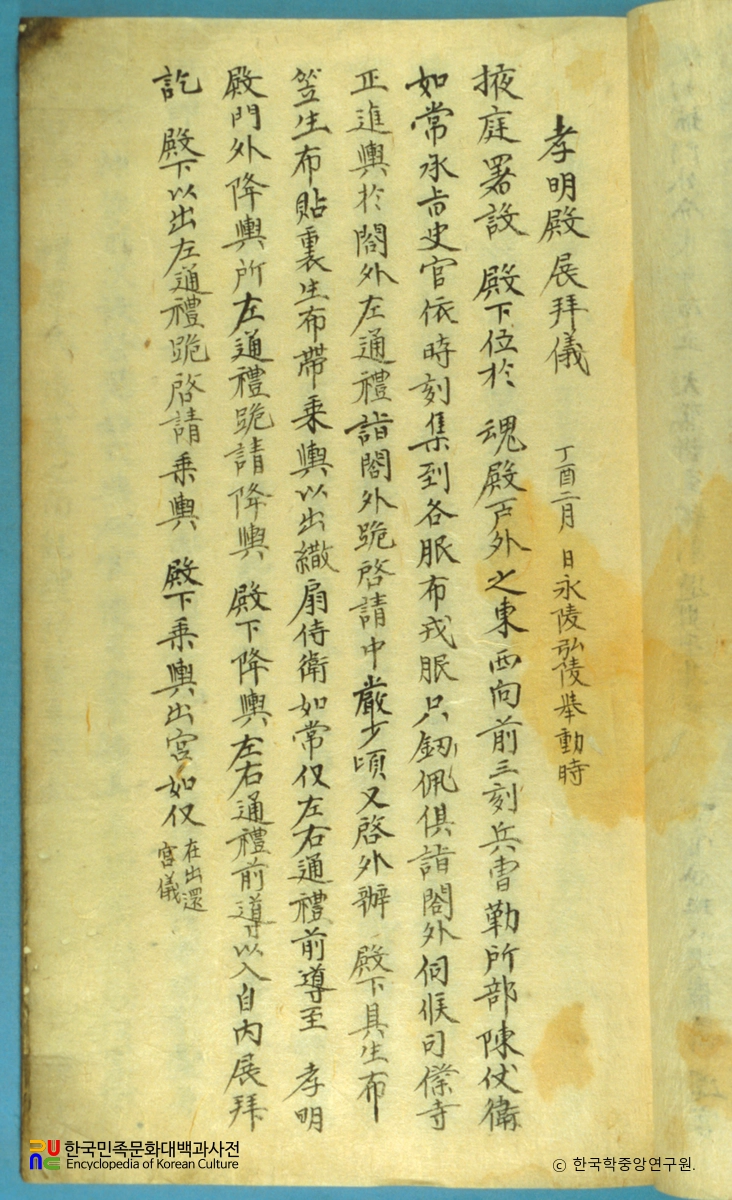 孝明殿展拜儀 丁酉二月 日永陵弘陵擧動時
掖庭署設 殿下位於 魂殿戶外之東西向前三刻兵曹勒所部陳仗衛
如常承旨史官依時刻集到各服布戎服只釰佩俱詣閤外伺候司僕寺
正進輿於閤外左通禮詣閤外跪啓請中嚴少頃又啓外辦 殿下具生布
笠生布貼裏生布帶乘輿以出繖扇侍衛如常仪左右通禮前導至 孝明
殿門外降輿所左通禮跪請降輿 殿下降輿左右通禮前導以入自內展拜
訖 殿下以出左通禮跪啓請乘輿 殿下乘輿出宮如仪 在出還宮儀
한국민족문화대백과사전
Encyclopedia of Korean Culture
© 한국학중앙연구원.